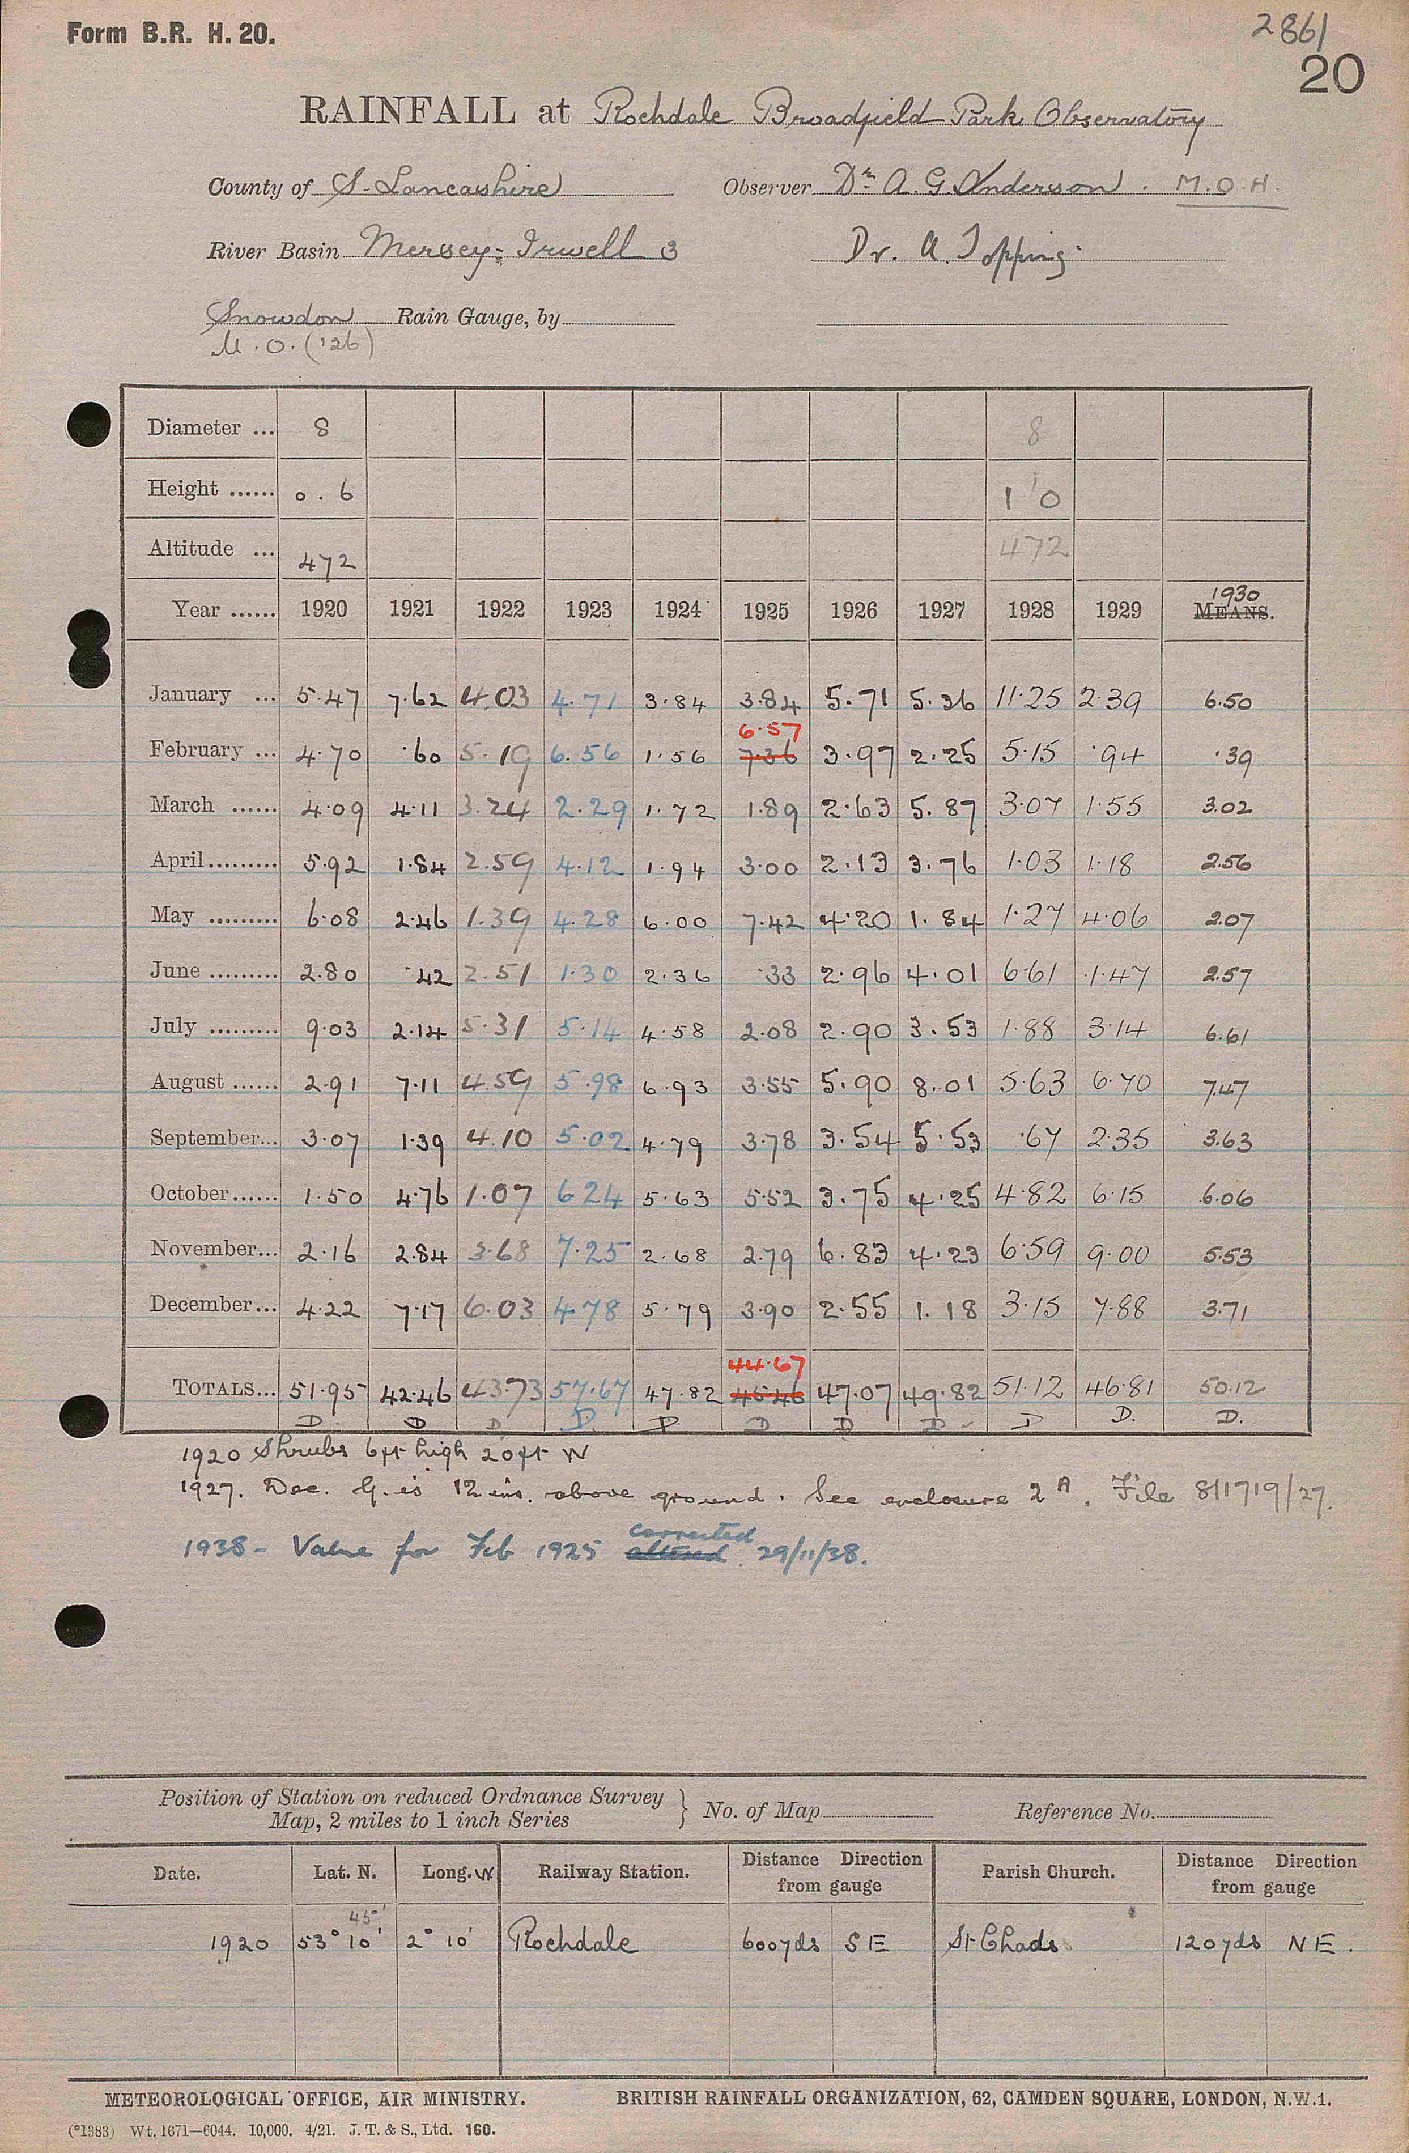 Form B.R. H. 20.
2861
20
RAINFALL at Rochdale Broadfield Park Observatory
County of S. Lancashire Observer Dr. A. G. Anderson. M.O.H.
River Basin Mersey: Irwell 3 Dr. A. Topping.
Snowdon Rain Gauge, by
M.O. ('26)
Diameter ... 8 8
Height ...... 0.6 1' 0
Altitude ... 472 472
Year ...... 1920 1921 1922 1923 1924 1925 1926 1927 1928 1929 1930 MEANS.
January ... 5.47 7.62 4.03 4.71 3.84 3.84 5.71 5.26 11.25 2.39 6.50
6.57
February ... 4.70 .60 5.19 6.56 1.56 7.36 3.97 2.25 5.15 .94 .39
March ...... 4.09 4.11 3.24 2.29 1.72 1.89 2.63 5.87 3.07 1.55 3.02
April......... 5.92 1.84 2.59 4.12 1.94 3.00 2.13 3.76 1.03 1.18 2.56
May ......... 6.08 2.46 1.39 4.28 6.00 7.42 4.20 1.84 1.27 4.06 2.07
June ......... 2.80 .42 2.51 1.30 2.36 .33 2.96 4.01 6.61 1.47 2.57
July ......... 9.03 2.14 5.31 5.14 4.58 2.08 2.90 3.53 1.88 3.14 6.61
August ...... 2.91 7.11 4.59 5.98 6.93 3.55 5.90 8.01 5.63 6.70 7.47
September... 3.07 1.39 4.10 5.02 4.79 3.78 3.54 5.53 .67 2.35 3.63
October...... 1.50 4.76 1.07 6.24 5.63 5.52 3.75 4.25 4.82 6.15 6.06
November... 2.16 2.84 3.68 7.25 2.68 2.79 6.83 4.23 6.59 9.00 5.53
December... 4.22 7.17 6.03 4.78 5.79 3.90 2.55 1.18 3.15 7.88 3.71
44.67
TOTALS... 51.95 42.46 43.73 57.67 47.82 45.46 47.07 49.82 51.12 46.81 50.12
D D D D. D D D D D D. D.
1920 Shrubs 6ft high 20ft W
1927. Dec. G. is 12 ins. above ground. See enclosure 2A. File 811719/27.
corrected
1938 - Value for Feb 1925 altered 29/11/38.
Position of Station on reduced Ordnance Survey
Map, 2 miles to 1 inch Series } No. of Map Reference No.
Date. Lat. N. Long. W Railway Station. Distance Direction from gauge Parish Church. Distance Direction from gauge
45'
1920 53° 10' 2° 10' Rochdale 600yds SE St Chads 120yds NE.
METEOROLOGICAL OFFICE, AIR MINISTRY. BRITISH RAINFALL ORGANIZATION, 62, CAMDEN SQUARE, LONDON, N.W.1.
(*1383) Wt. 1671—6044. 10,000. 4/21. J. T. & S., Ltd. 160.